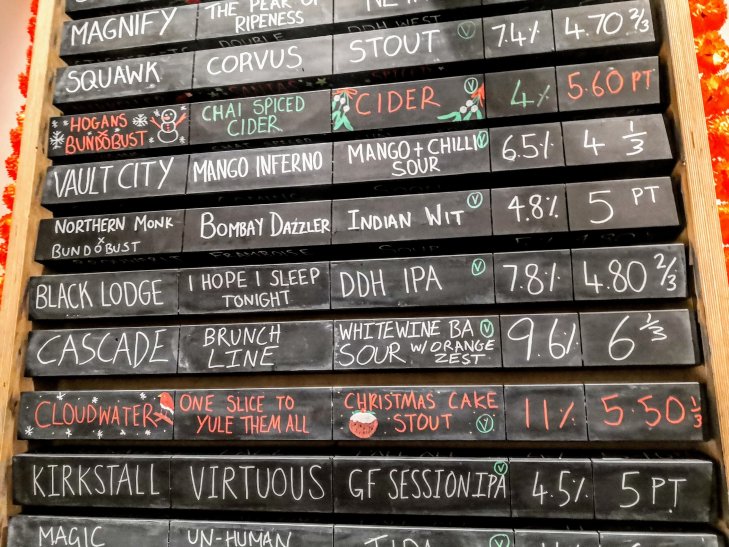 MAGNIFY THE PEAK OF RIPENESS 7.4% 4.70 2/3
SQUAWK CORVUS STOUT V
HOGANS X BUNDOBUST CHAI SPICED CIDER CIDER V 4% 5.60 PT
VAULT CITY MANGO INFERNO MANGO + CHILLI SOUR V 6.5% 4 1/3
NORTHERN MONK X BUNDOBUST BOMBAY DAZZLER INDIAN WIT V 4.8% 5 PT
BLACK LODGE I HOPE I SLEEP TONIGHT DDH IPA V 7.8% 4.80 2/3
CASCADE BRUNCH LINE WHITEWINE BA SOUR W/ORANGE ZEST V 9.6% 6 1/3
CLOUDWATER ONE SLICE TO YULE THEM ALL CHRISTMAS CAKE STOUT V 11% 5.50 1/3
KIRKSTALL VIRTUOUS GF SESSION IPA V 4.5% 5 PT
MAGIC UN-HUMAN